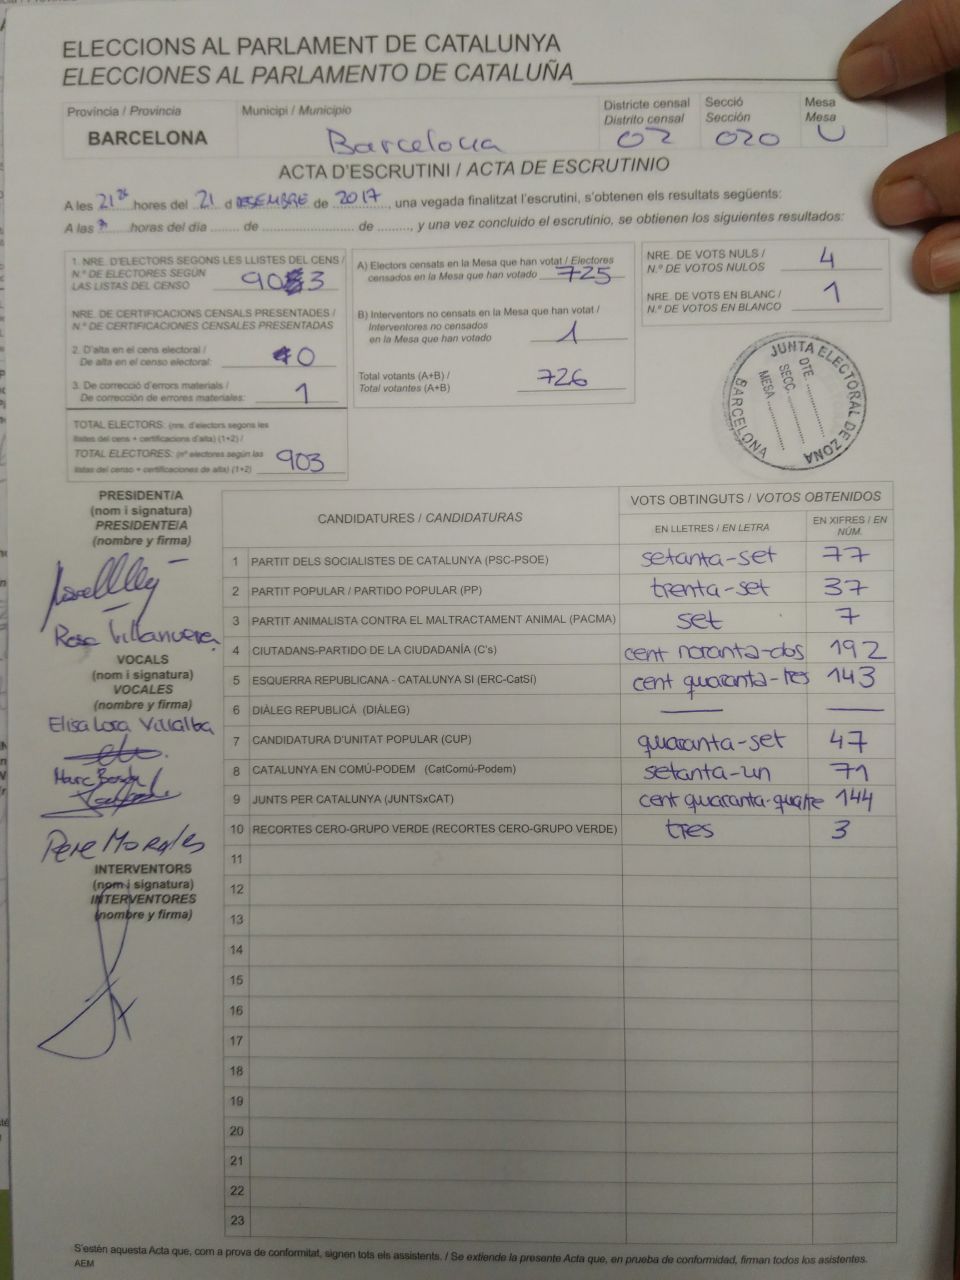 ELECCIONS AL PARLAMENT DE CATALUNYA
ELECCIONES AL PARLAMENTO DE CATALUÑA
Província / Provincia
BARCELONA
Municipi / Municipio
Barcelona
Districte censal
Distrito censal
02
Secció
Sección
020
Mesa
Mesa
U
ACTA D'ESCRUTINI / ACTA DE ESCRUTINIO
A les 21 hores del 21 d DESEMBRE de 2017, una vegada finalitzat l'escrutini, s'obtenen els resultats següents:
A las horas del día ........ de ........................ de ........, y una vez concluido el escrutinio, se obtienen los siguientes resultados:
1. NRE. D'ELECTORS SEGONS LES LLISTES DEL CENS /
N.º DE ELECTORES SEGÚN
LAS LISTAS DEL CENSO 903
NRE. DE CERTIFICACIONS CENSALS PRESENTADES /
N.º DE CERTIFICACIONES CENSALES PRESENTADAS
2. D'alta en el cens electoral /
De alta en el censo electoral: 0
3. De correcció d'errors materials /
De corrección de errores materiales: 1
TOTAL ELECTORS: (nre. d'electors segons les
llistes del cens + certificacions d'alta) (1+2) /
TOTAL ELECTORES: (nº electores según las
listas del censo + certificaciones de alta) (1+2) 903
A) Electors censats en la Mesa que han votat / Electores
censados en la Mesa que han votado 725
B) Interventors no censats en la Mesa que han votat /
Interventores no censados
en la Mesa que han votado 1
Total votants (A+B) /
Total votantes (A+B) 726
NRE. DE VOTS NULS /
N.º DE VOTOS NULOS 4
NRE. DE VOTS EN BLANC /
N.º DE VOTOS EN BLANCO 1
JUNTA ELECTORAL DE ZONA
BARCELONA
DTE. ..............
SECC. ..............
MESA ..............
PRESIDENT/A
(nom i signatura)
PRESIDENTE/A
(nombre y firma)
Rosa Villanueva
VOCALS
(nom i signatura)
VOCALES
(nombre y firma)
Elisa Lora Villalba
Marc
Pere Morales
INTERVENTORS
(nom i signatura)
INTERVENTORES
(nombre y firma)
CANDIDATURES / CANDIDATURAS
VOTS OBTINGUTS / VOTOS OBTENIDOS
EN LLETRES / EN LETRA
EN XIFRES / EN NÚM.
1 PARTIT DELS SOCIALISTES DE CATALUNYA (PSC-PSOE) setanta-set 77
2 PARTIT POPULAR / PARTIDO POPULAR (PP) trenta-set 37
3 PARTIT ANIMALISTA CONTRA EL MALTRACTAMENT ANIMAL (PACMA) set 7
4 CIUTADANS-PARTIDO DE LA CIUDADANÍA (C's) cent noranta-dos 192
5 ESQUERRA REPUBLICANA - CATALUNYA SI (ERC-CatSí) cent quaranta-tres 143
6 DIÀLEG REPUBLICÀ (DIÀLEG)
7 CANDIDATURA D'UNITAT POPULAR (CUP) quaranta-set 47
8 CATALUNYA EN COMÚ-PODEM (CatComú-Podem) setanta-un 71
9 JUNTS PER CATALUNYA (JUNTSxCAT) cent quaranta-quatre 144
10 RECORTES CERO-GRUPO VERDE (RECORTES CERO-GRUPO VERDE) tres 3
11
12
13
14
15
16
17
18
19
20
21
22
23
S'estén aquesta Acta que, com a prova de conformitat, signen tots els assistents. / Se extiende la presente Acta que, en prueba de conformidad, firman todos los asistentes.
AEM